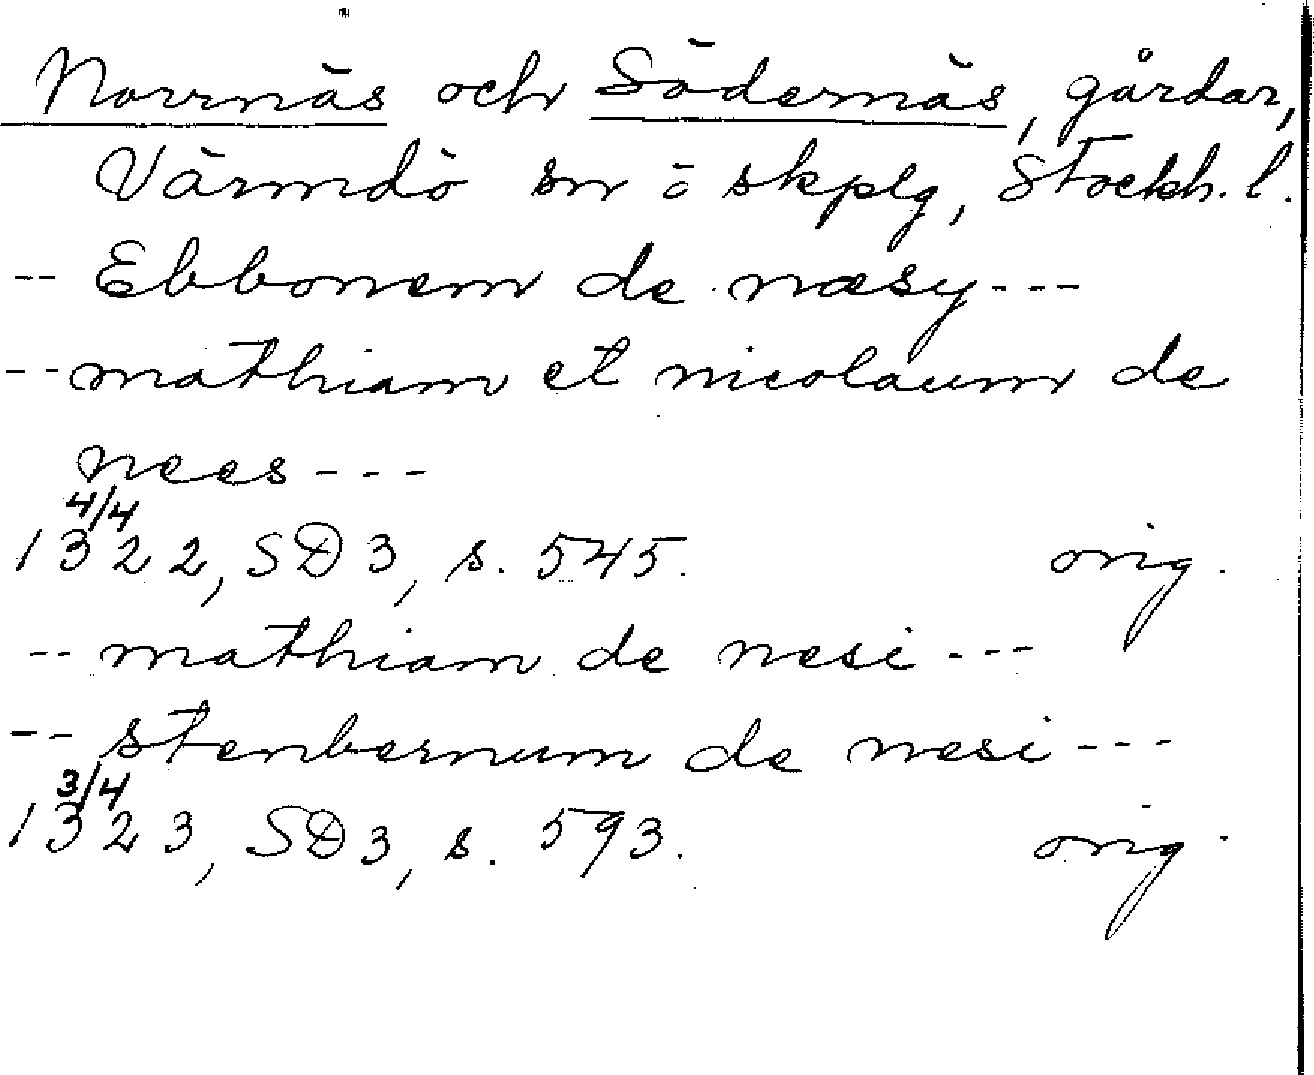 Norrnäs och Södernäs, gårdar,
Värmdö sn ö skplg, Stockh. l.
-- Ebbonem de næsy ---
-- mathiam et nicolaum de
nees ---
4/4
1322, SD 3, s. 545. orig.
-- mathiam de nesi ---
-- stenbernum de nesi ---
3/4
1323, SD 3, s. 593. orig.